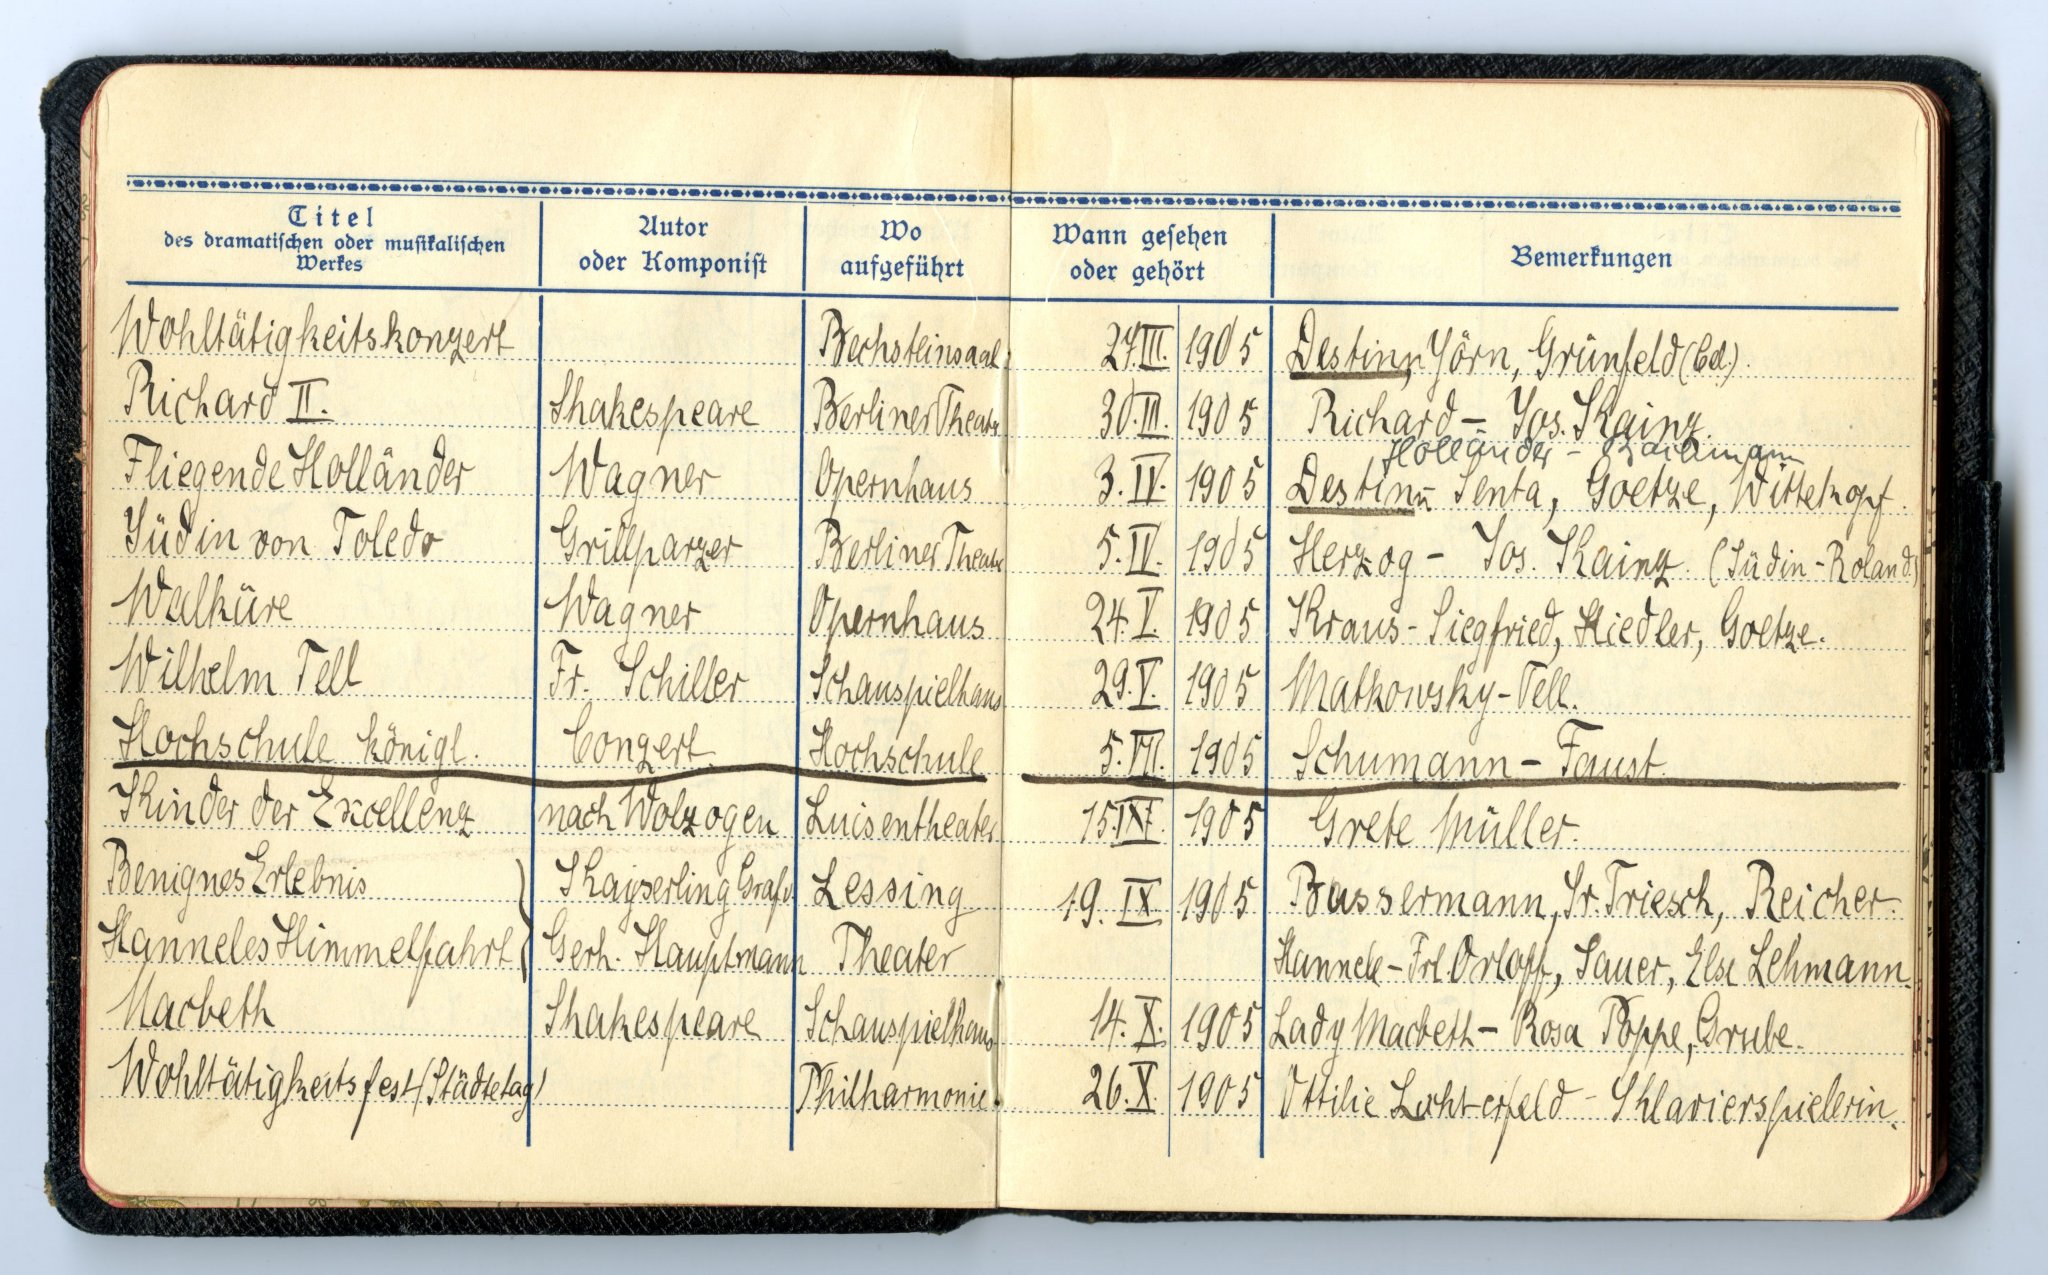 Titel
des dramatischen oder musikalischen
Werkes
Autor
oder Komponist
Wo
aufgeführt
Wann gesehen
oder gehört
Bemerkungen
Wohltätigkeitskonzert Bechsteinsaal 27.III. 1905 Destinn, Jörn, Grünfeld (Cel.).
Richard II. Shakespeare Berliner Theater 30.III. 1905 Richard – Jos. Kainz.
Holländer – Bachmann
Fliegende Holländer Wagner Opernhaus 3.IV. 1905 Destinn – Senta, Goetze, Wittekopf.
Jüdin von Toledo Grillparzer Berliner Theater 5.IV. 1905 Herzog – Jos. Kainz. (Jüdin – Roland)
Walküre Wagner Opernhaus 24.V. 1905 Kraus – Siegfried, Hiedler, Goetze.
Wilhelm Tell Fr. Schiller Schauspielhaus 29.V. 1905 Matkowsky – Tell.
Hochschule königl. Conzert. Hochschule 5.VII. 1905 Schumann – Faust.
Kinder der Excellenz nach Wolzogen Luisentheater 15.IX. 1905 Grete Müller.
Benignes Erlebnis Kayserling Graf v. Lessing 19. IX 1905 Bassermann, Ir. Triesch, Reicher.
Hanneles Himmelfahrt Gerh. Hauptmann Theater Hannele – Frl. Orloff, Sauer, Else Lehmann.
Macbeth Shakespeare Schauspielhaus 14. X. 1905 Lady Macbeth – Rosa Poppe, Grube.
Wohltätigkeitsfest (Städtetag) Philharmonie. 26.X. 1905 Ottilie Lichterfeld – Klavierspielerin.